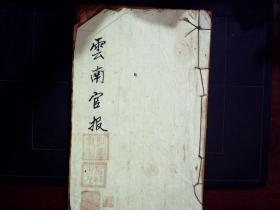 雲南官报